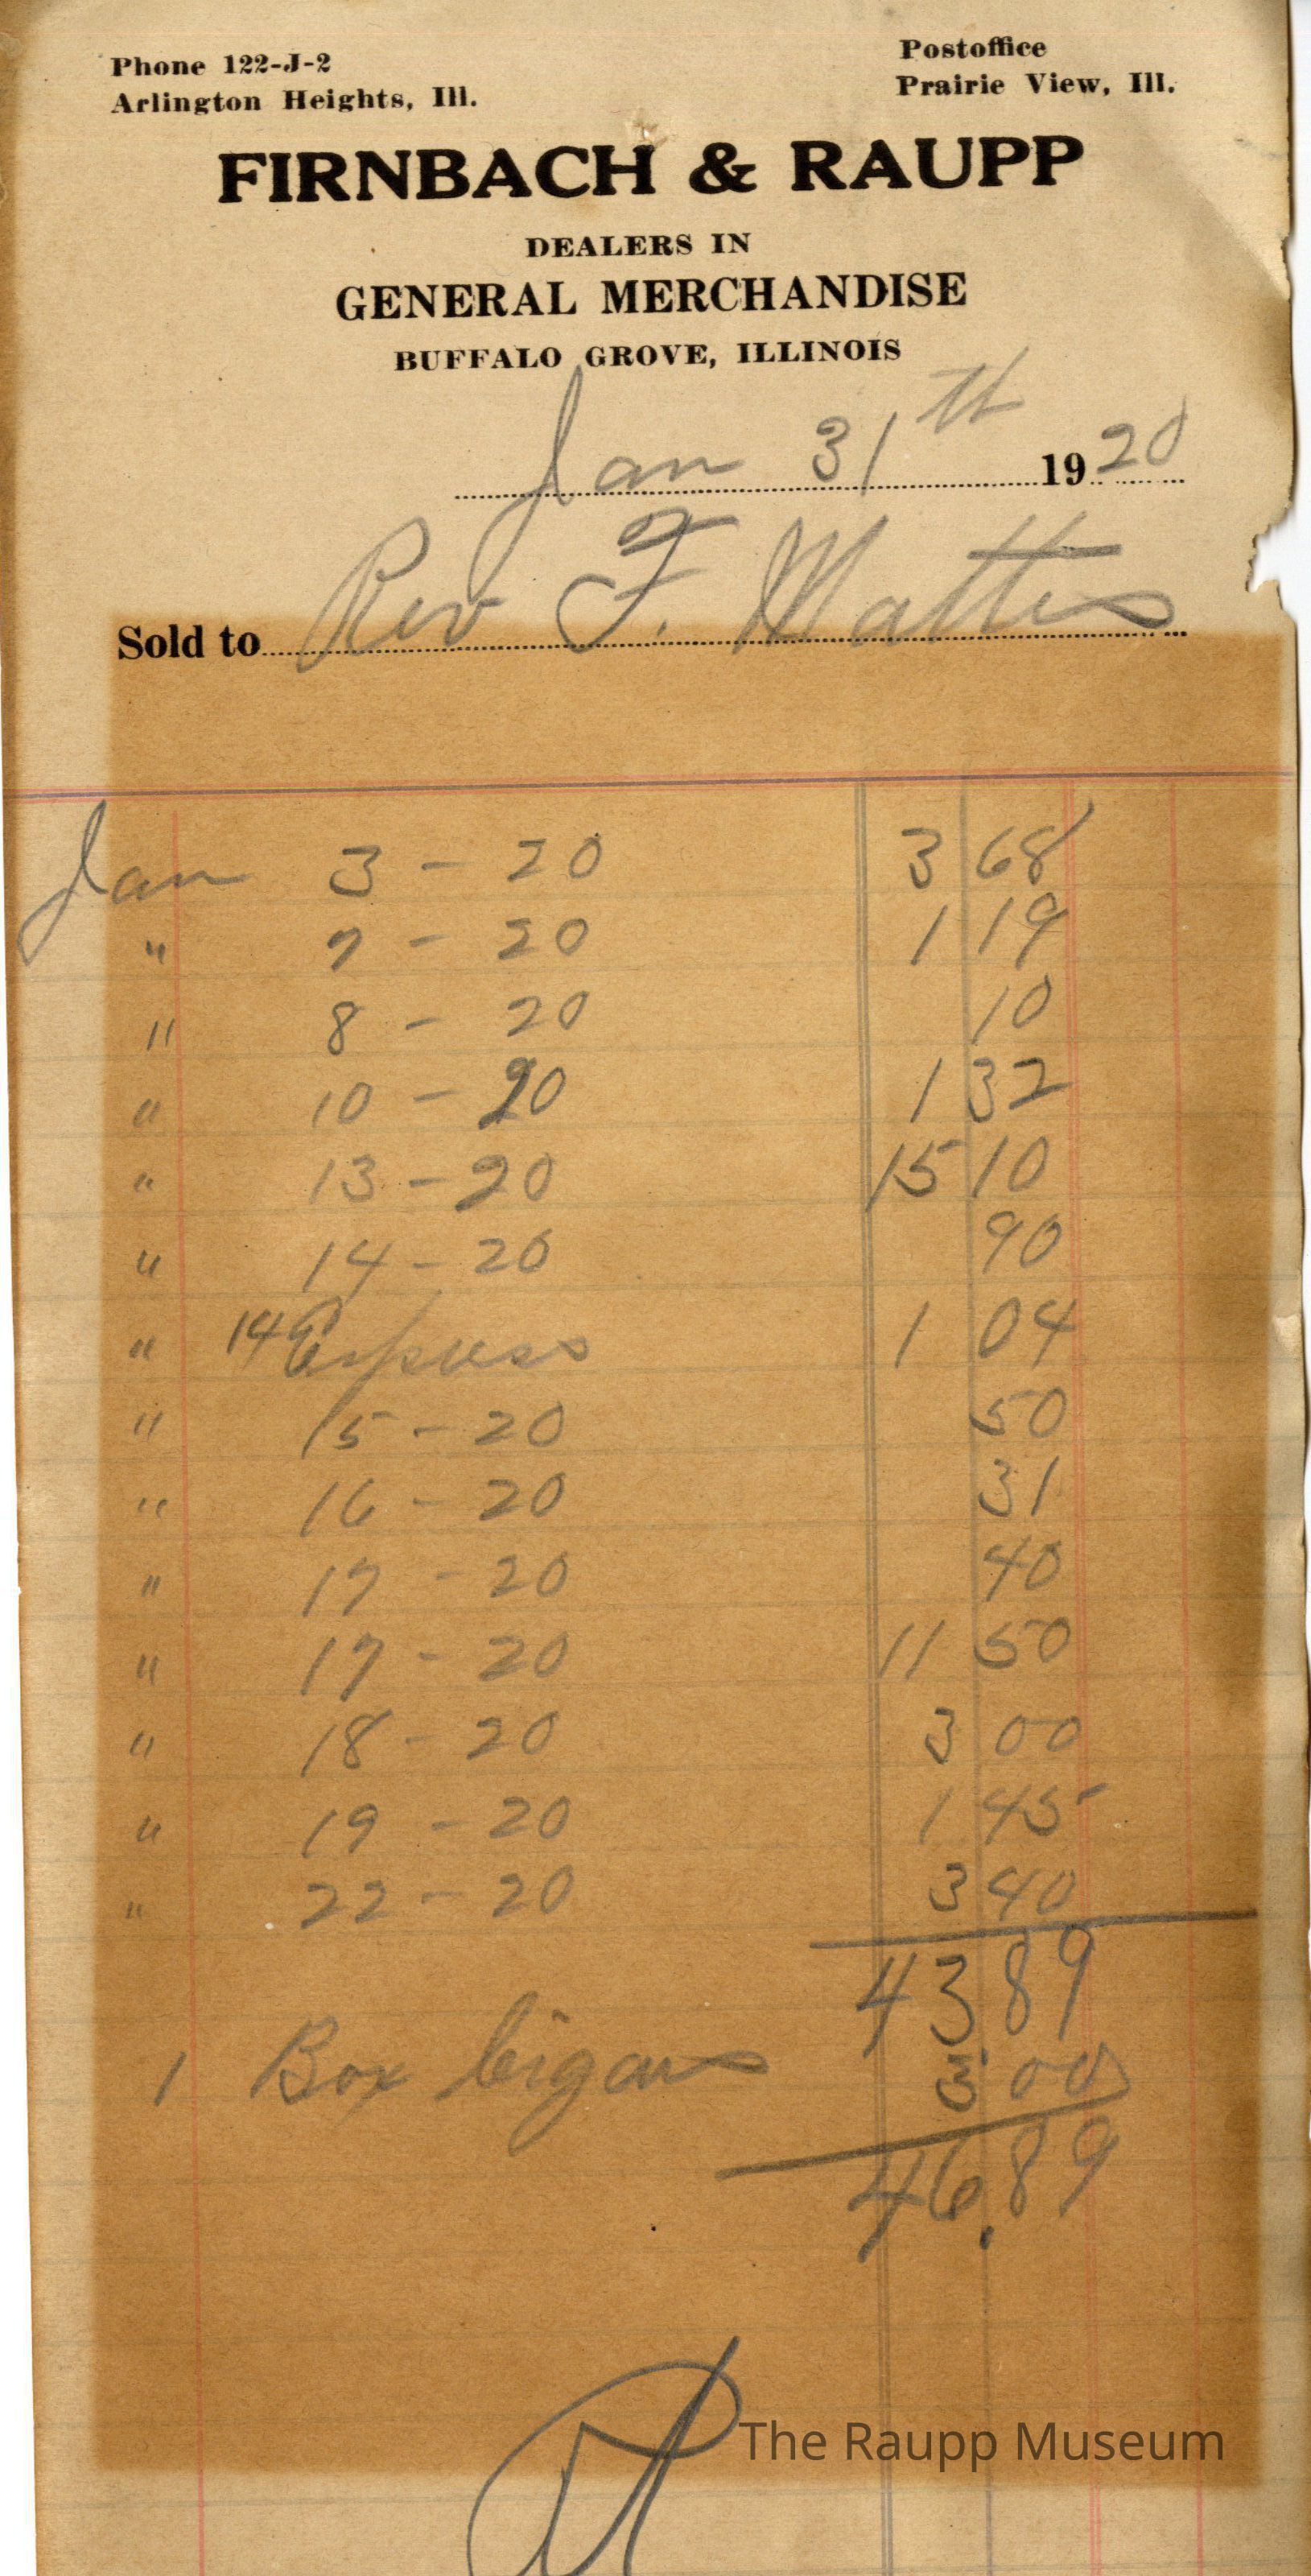 Phone 122-J-2
Arlington Heights, Ill.
Postoffice
Prairie View, Ill.
FIRNBACH & RAUPP
DEALERS IN
GENERAL MERCHANDISE
BUFFALO GROVE, ILLINOIS
Jan 31th 1920
Sold to Rev F. Mattes
Jan 3 - 20 3 68
" 7 - 20 1 19
" 8 - 20 10
" 10 - 20 1 32
" 13 - 20 15 10
" 14 - 20 90
" 14 Express 1 04
" 15 - 20 50
" 16 - 20 31
" 17 - 20 40
" 17 - 20 11 50
" 18 - 20 3 00
" 19 - 20 1 45
" 22 - 20 3 40
43 89
1 Box Cigars 3 00
46.89
The Raupp Museum